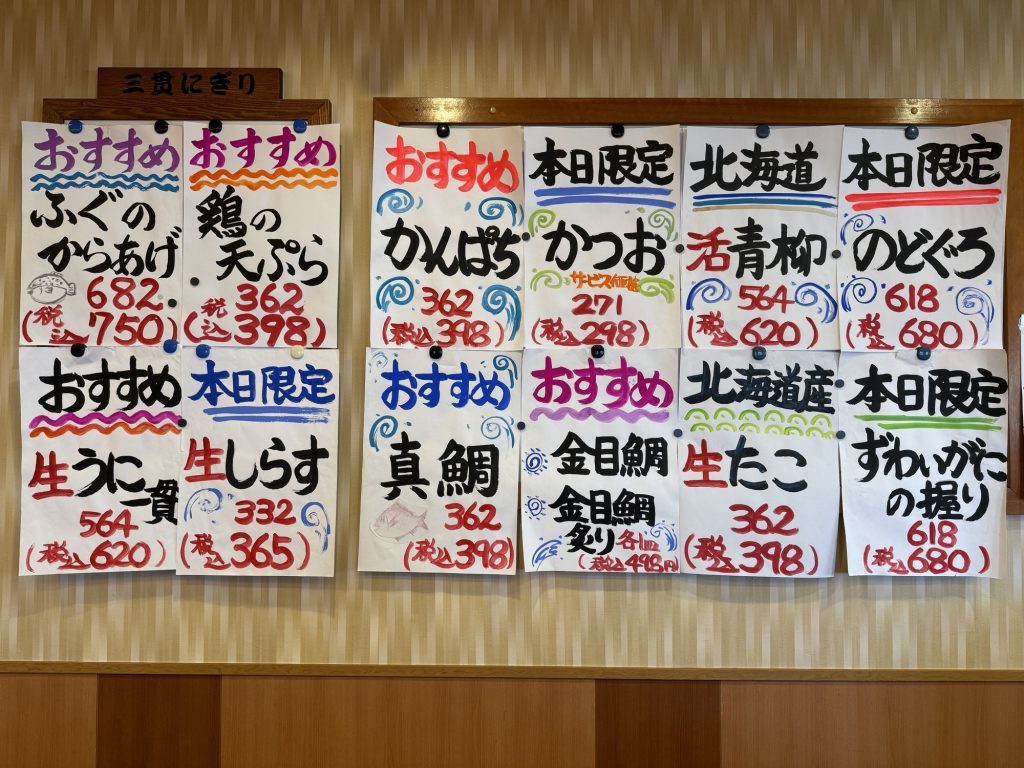 三貫にぎり
おすすめ
ふぐの
からあげ
682
(税込750)
おすすめ
鶏の
天ぷら
362
(税込398)
おすすめ
かんぱち
362
(税込398)
本日限定
かつお
サービス価格
271
(税込298)
北海道
活青柳
564
(税込620)
本日限定
のどぐろ
618
(税込680)
おすすめ
生うに
一貫
564
(税込620)
本日限定
生しらす
332
(税込365)
おすすめ
真鯛
362
(税込398)
おすすめ
金目鯛
金目鯛
炙り 各一皿
(税込495円)
北海道産
生たこ
362
(税込398)
本日限定
ずわいがに
の握り
618
(税込680)